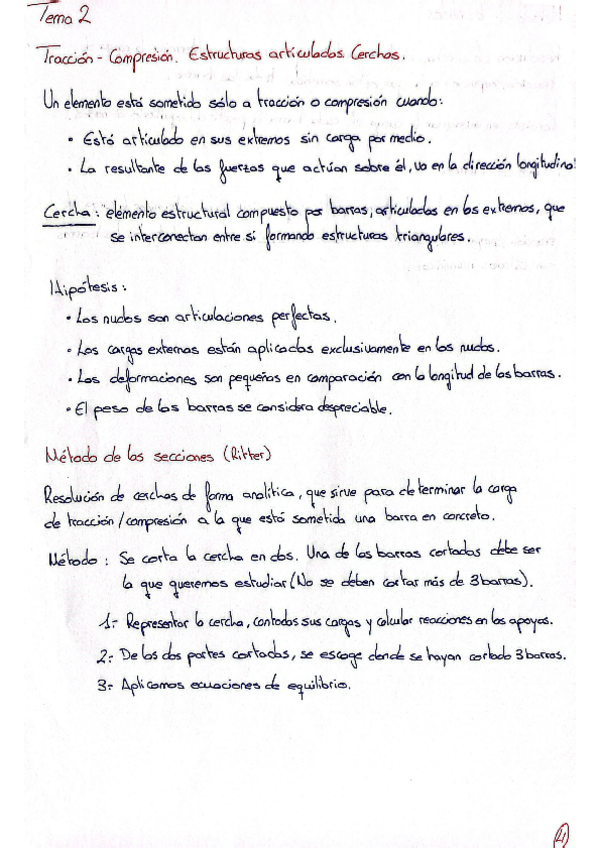 Tema 2
Tracción - Compresión. Estructuras articuladas. Cerchas.
Un elemento está sometido sólo a tracción o compresión cuando:
• Está articulado en sus extremos sin carga por medio.
• La resultante de las fuerzas que actúan sobre él, va en la dirección longitudinal
Cercha: elemento estructural compuesto por barras, articuladas en los extremos, que
se interconectan entre sí formando estructuras triangulares.
Hipótesis:
• Los nudos son articulaciones perfectas.
• Las cargas externas están aplicadas exclusivamente en los nudos.
• Las deformaciones son pequeñas en comparación con la longitud de las barras.
• El peso de las barras se considera despreciable.
Método de las secciones (Ritter)
Resolución de cerchas de forma analítica, que sirve para determinar la carga
de tracción/compresión a la que está sometida una barra en concreto.
Método: Se corta la cercha en dos. Una de las barras cortadas debe ser
la que queremos estudiar (No se deben cortar más de 3 barras).
1.- Representar la cercha, con todas sus cargas y calcular reacciones en los apoyos.
2.- De las dos partes cortadas, se escoge donde se hayan cortado 3 barras.
3.- Aplicamos ecuaciones de equilibrio.
4